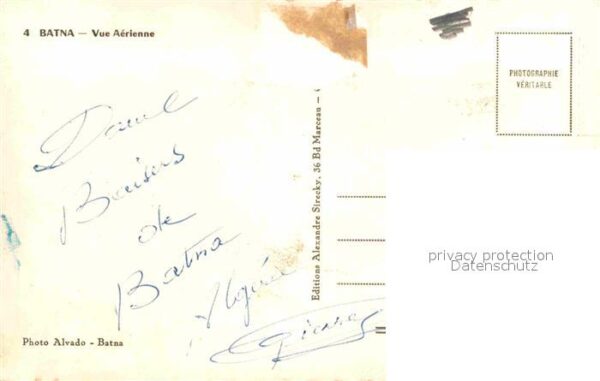 4 BATNA — Vue Aérienne
PHOTOGRAPHIE
VÉRITABLE
Baisers
de
Batna
Algérie
Editions Alexandre Sirecky, 36 Bd Marceau —
privacy protection
Datenschutz
Photo Alvado - Batna